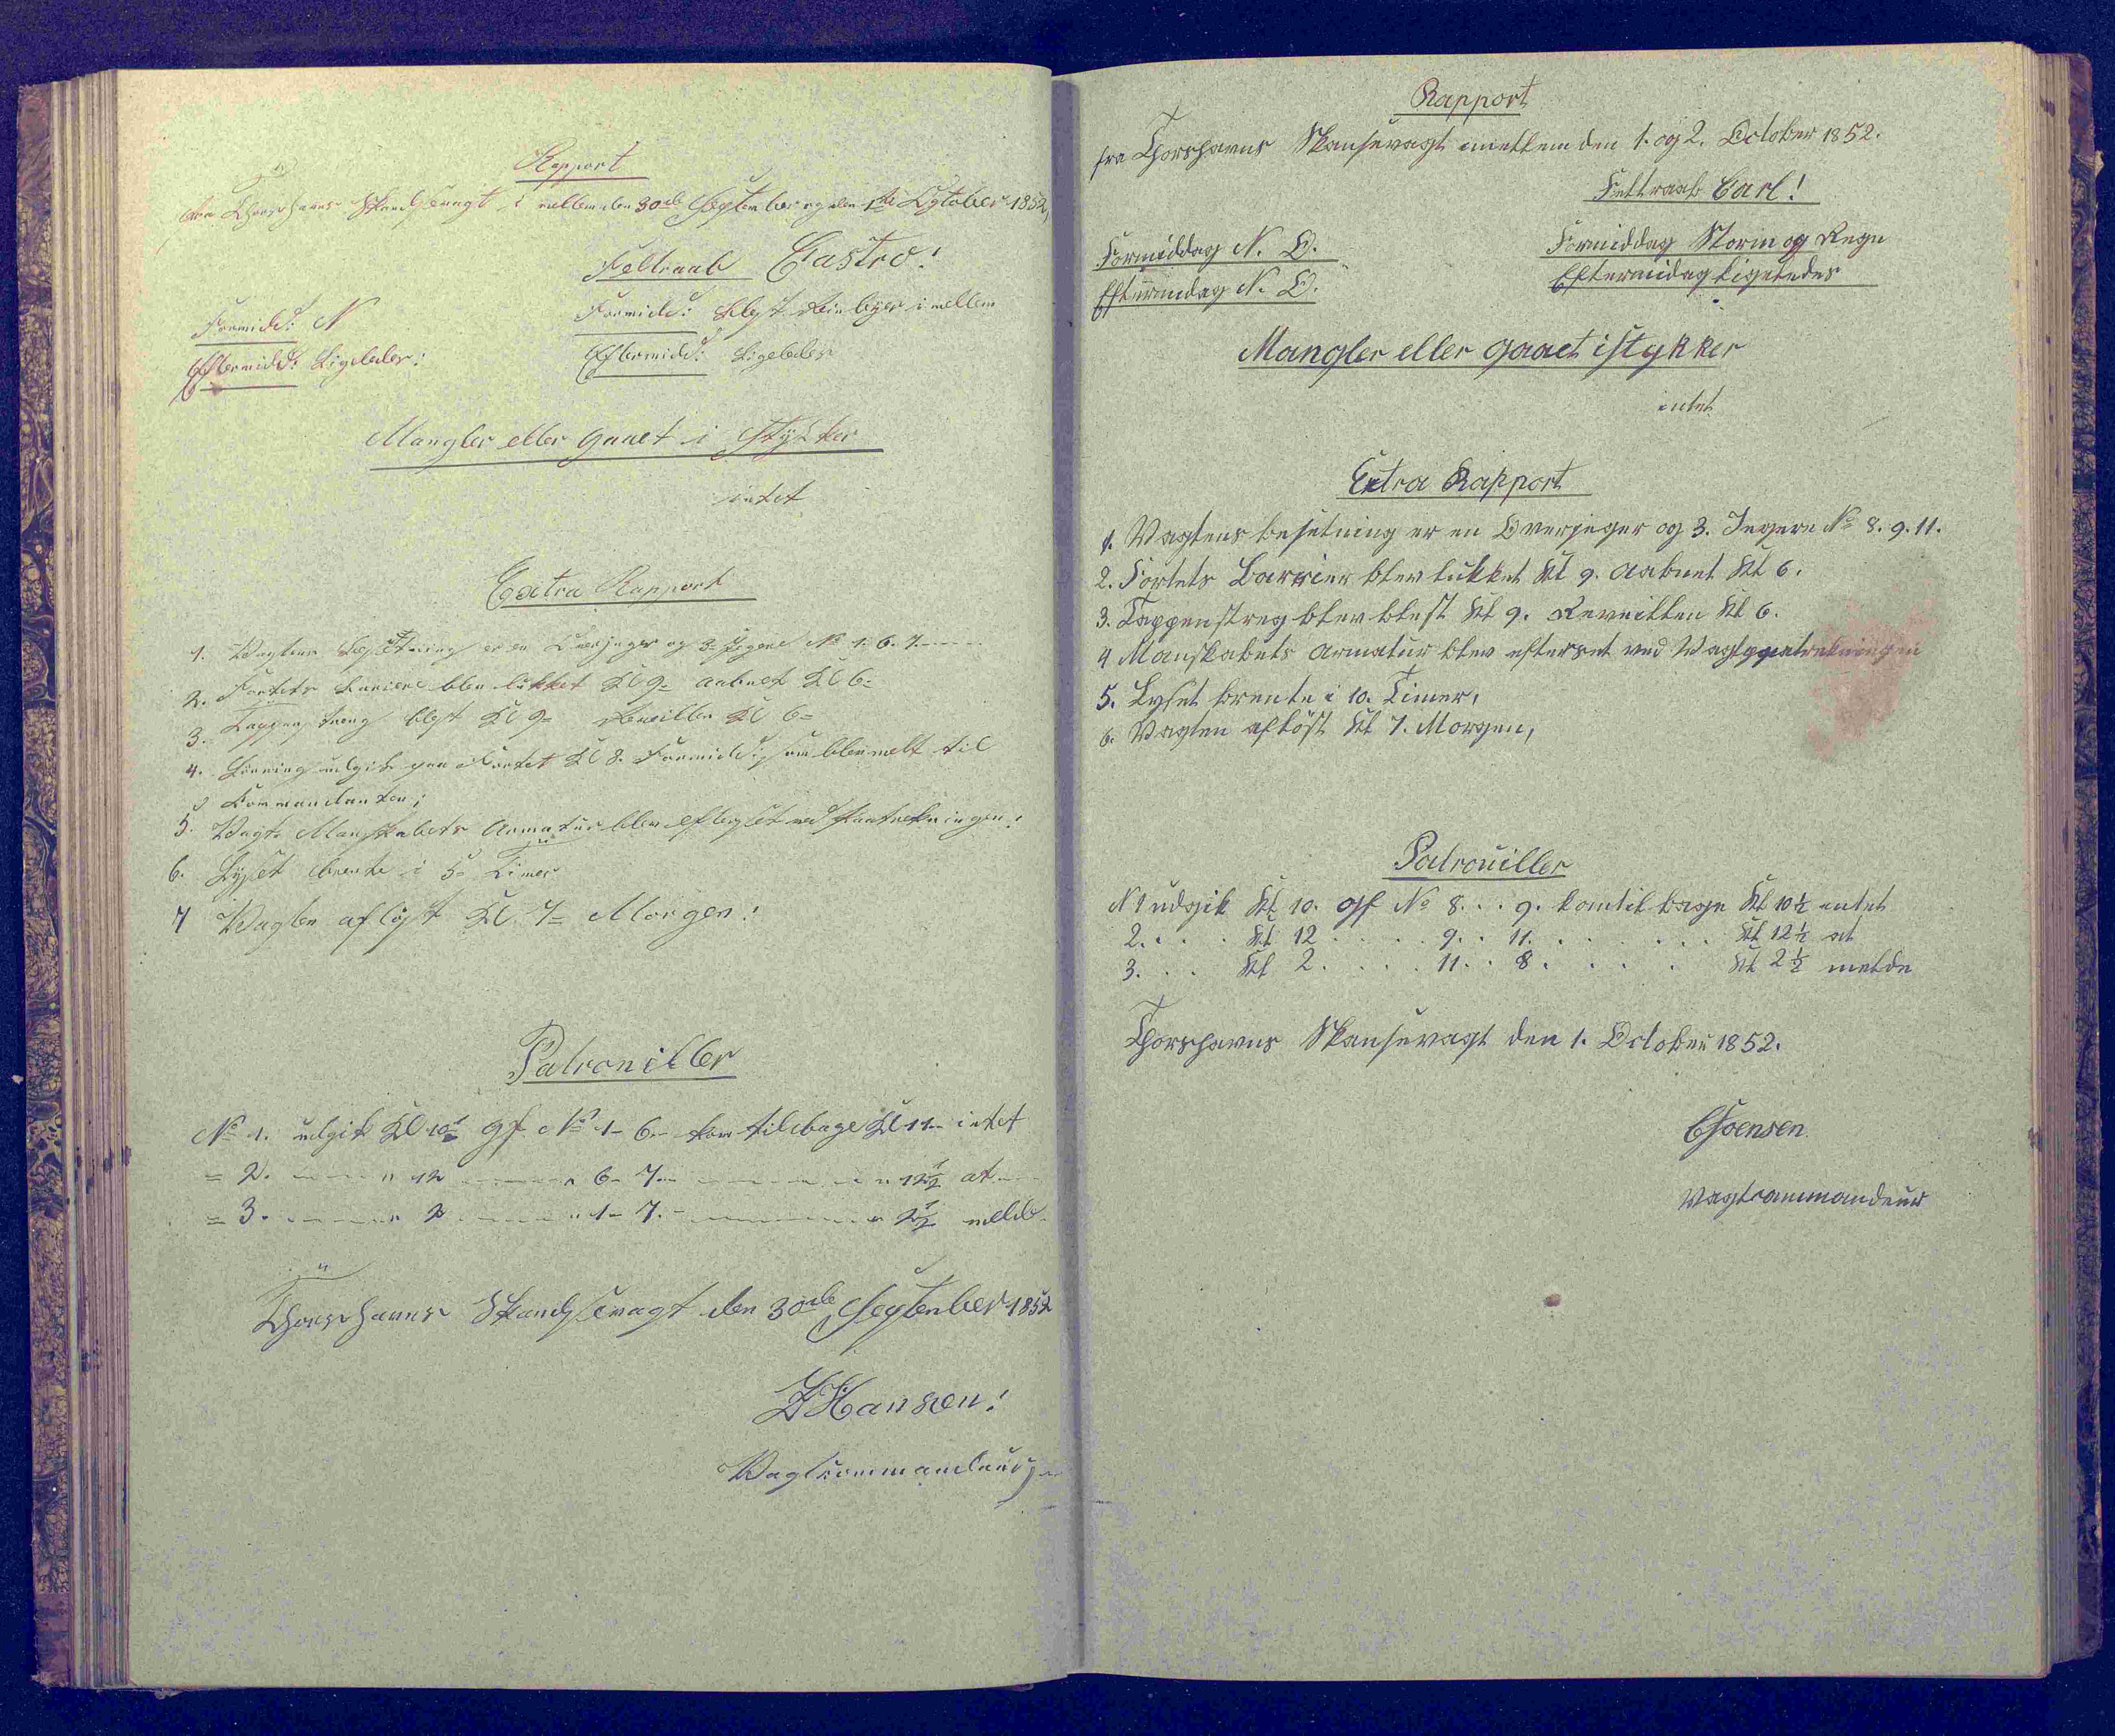 Rapport
fra Thorshavns Skandsevagt i mellem den 30de September og den 1ste October 1852,
Feltraab Castro!
Formidd: N
Formidd: Blest Reinbyer i mellem
Eftermidd: Ligeledes:
Eftermidd: Ligeledes
Mangler eller gaaet i Stykker
intet
Extra Rapport
1. Vagtens Besetning er en Overjeger og 3 Jegere No 1. 6. 7.
2. Fortets Barriere blev lukket Kl 9= aabnet Kl 6=
3. Tappenstreg blest Kl 9= Reveillen Kl 6=
4. Lönning udgik paa Fortet Kl 8. Formidd: som blev melt til
Kommandanten;
5. Vagts Manskabets Armatur blev efterset ved Fratredningen:
6. Lyset brente i 5= Timer
7 Vagten aflöst Kl 7= Morgen:
Patrouiller
No 1. udgik Kl 10½ gf No 1- 6.- kom tilbage Kl 11- intet
= 2. - - - " 12 - - - " 6- 7.- - - - - " 12½ at
= 3. - - - " 2 - - - " 1- 7.- - - - - " 2½ melde
Thorshavns Skandsevagt den 30de September 1852
Hansen!
Vagtcommandeur
Rapport
fra Thorshavns Skansevagt imellem den 1. og 2. October 1852.
Feltraab Carl!
Formiddag N. O.
Formiddag Storm og Regn
Eftermidag N. O.
Eftermidag ligeledes
Mangler eller gaaet istykker
intet
Extra Rapport
1. Vagtens besetning er en Overjeger og 3. Jegere No 8. 9. 11.
2. Fortets Barrier blev lukket Kl 9. aabnet Kl 6.
3. Tappenstreg blev blest Kl 9. Reveillen Kl 6.
4 Manskabets Armatur blev efterset ved Vagtens
5. Lyset brente i 10. Timer,
6. Vagten aflöst Kl 7. Morgen,
Patrouiller
N 1 udgik Kl 10. gf No 8. . . 9. kom tilbage Kl 10½ intet
2. . . . Kl 12 . . . . 9. . 11. . . . . . . Kl 12½ at
3. . . Kl 2. . . . . 11. . 8. . . . . Kl 2½ melde
Thorshavns Skansevagt den 1. October 1852.
Joensen
Vagtcommandeur